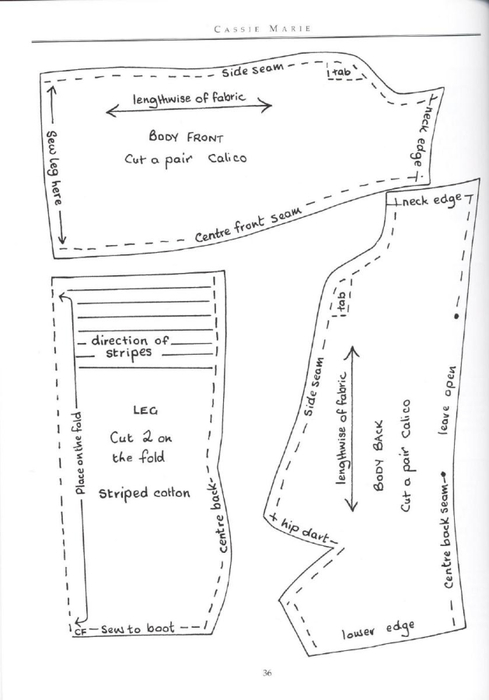 CASSIE MARIE
Side seam
tab
lengthwise of fabric
BODY FRONT
Cut a pair Calico
Sew leg here
neck edge
Centre front seam
neck edge
tab
Side seam
lengthwise of fabric
BODY BACK
Cut a pair Calico
leave open
Centre back seam
hip dart
lower edge
direction of
stripes
LEG
Cut 2 on
the fold
Striped cotton
Place on the fold
Centre back
CF - Sew to boot
36